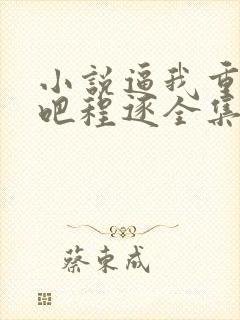 小說逼我重
吧程逐全集
蔡東成